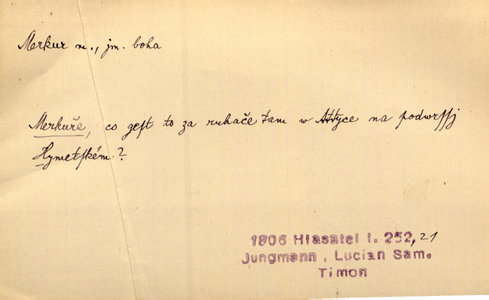 Merkur m., jm. boha
Merkuře, co gest to za ruhače tam w Attyce na podwrssj
Hymetském?
1806 Hlasatel I. 252, 21
Jungmann, Lucian Sam.
Timon